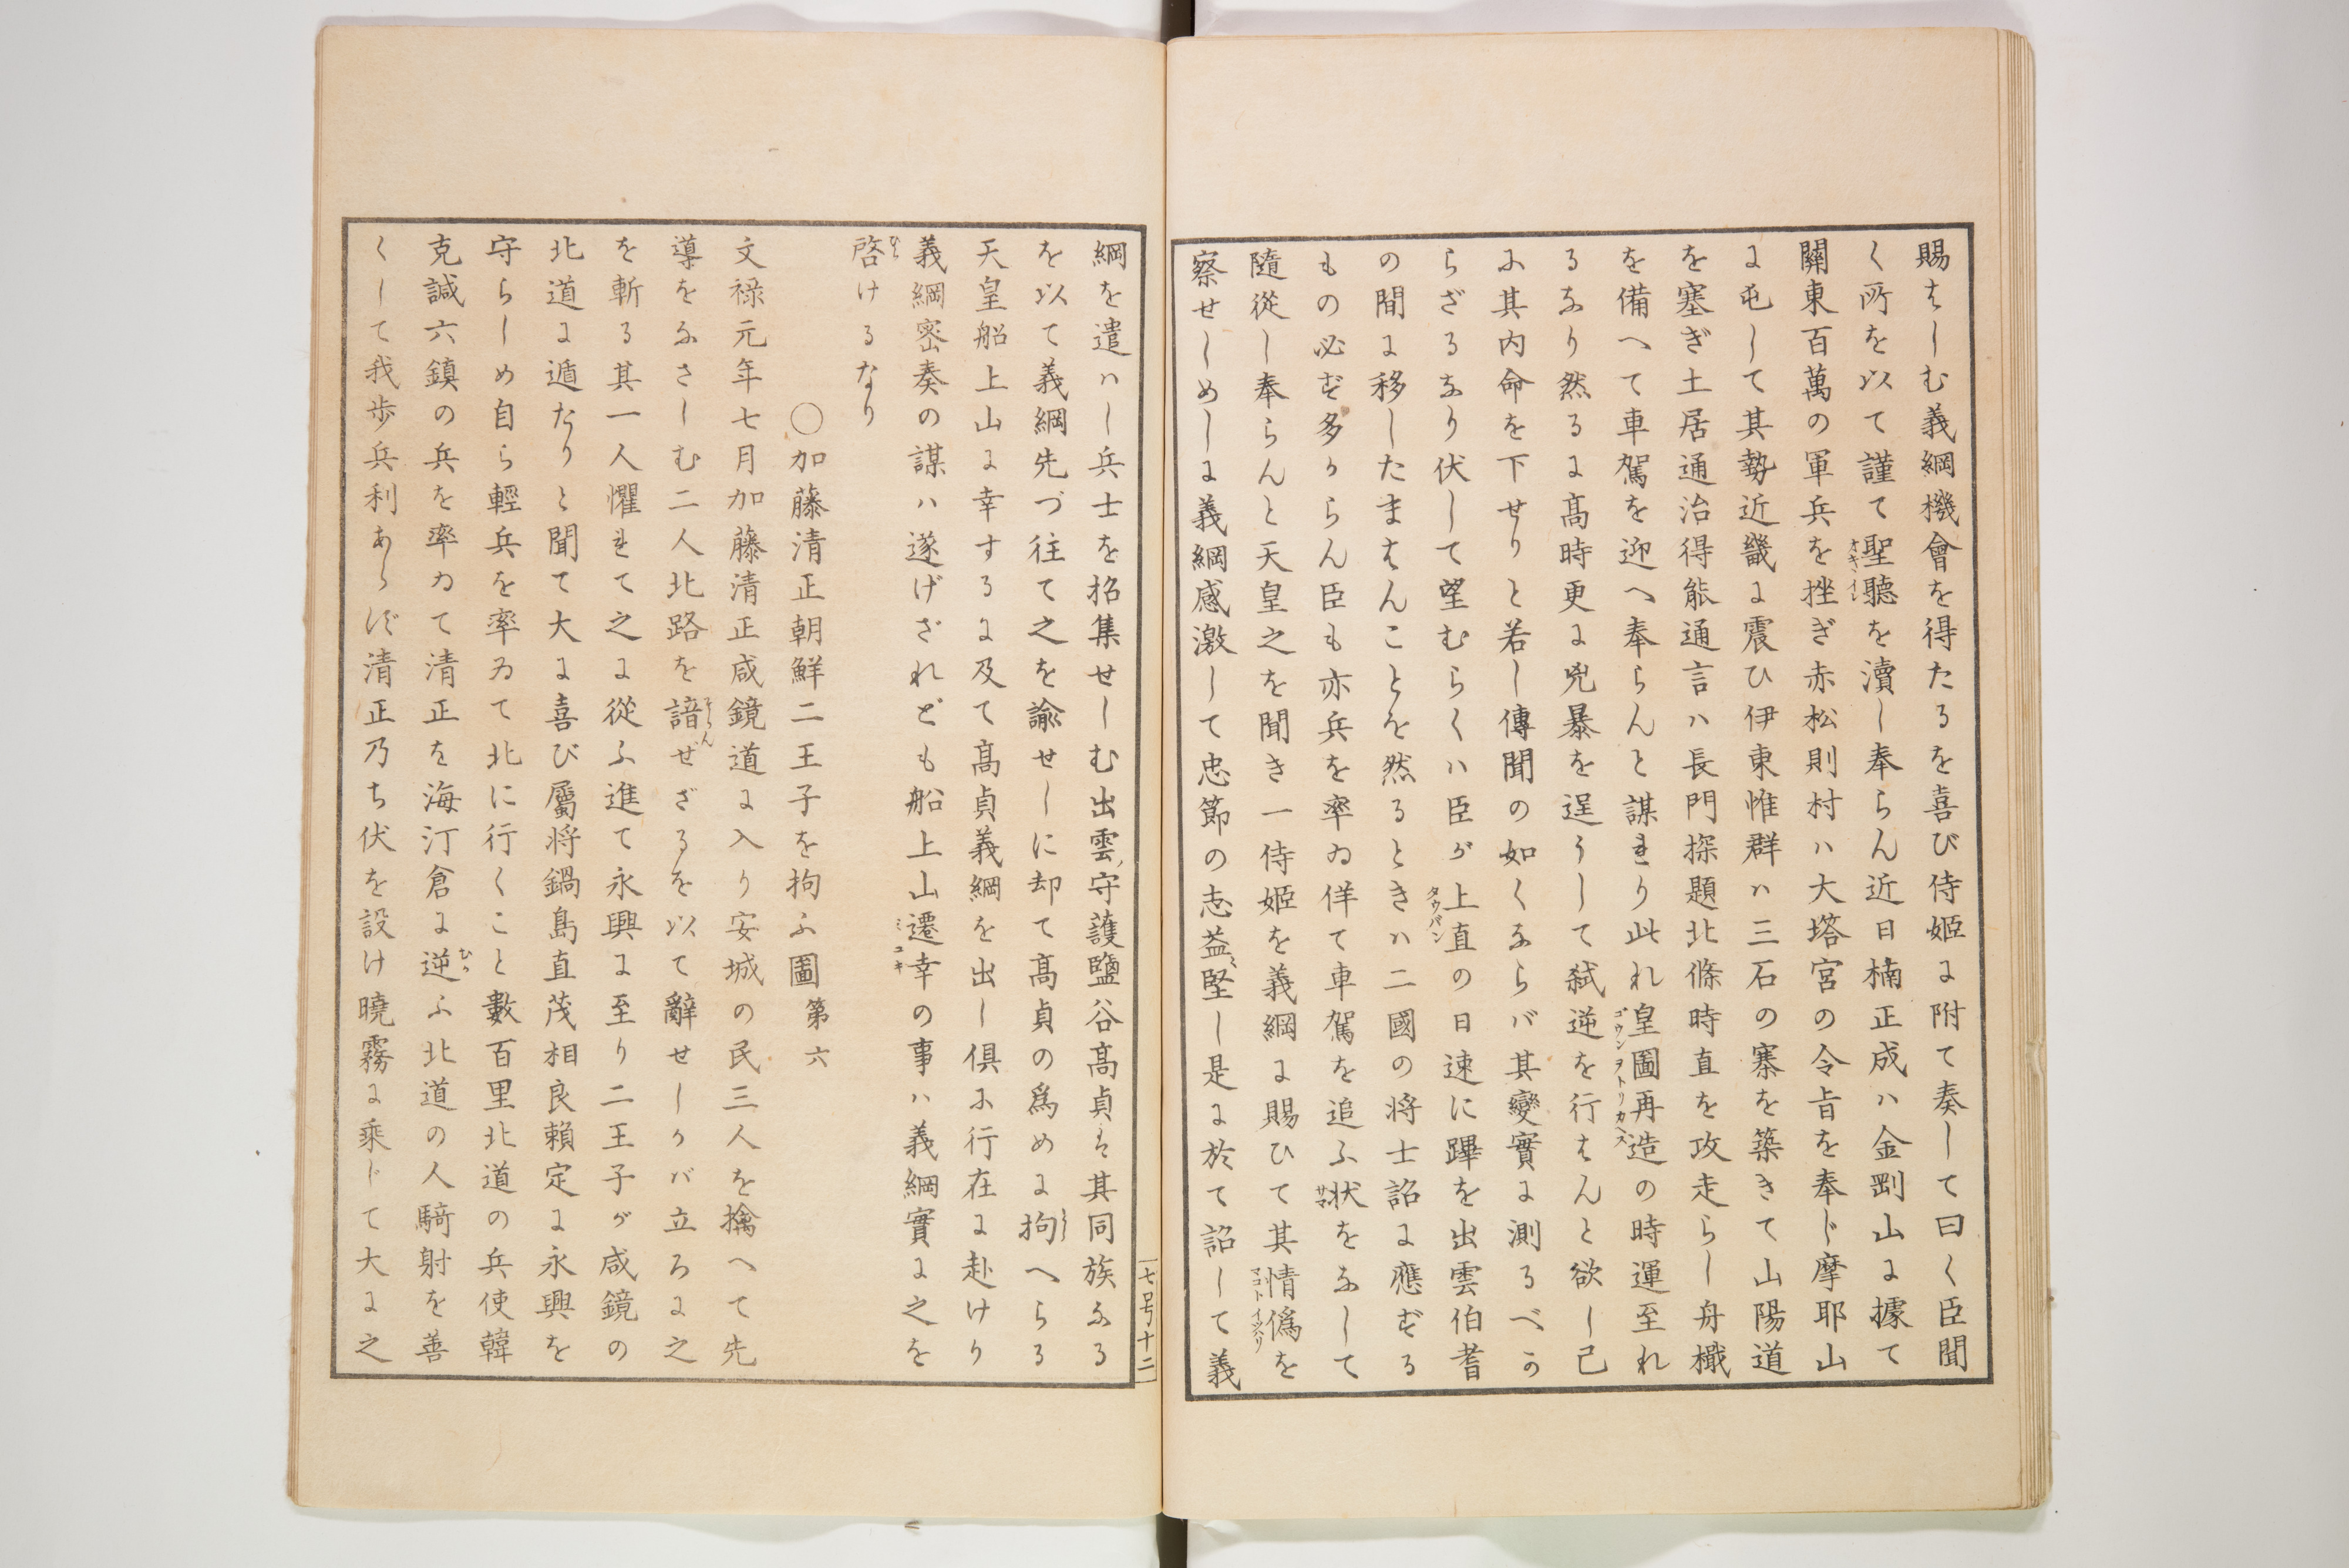 賜はしむ義綱機會を得たるを喜び侍姫に附て奏して曰く臣聞
く所を以て謹て聖聽を瀆し奉らん近日楠正成ハ金剛山に據て
關東百萬の軍兵を挫ぎ赤松則村ハ大塔宮の令旨を奉じ摩耶山
に屯して其勢近畿に震ひ伊東惟群ハ三石の寨を築きて山陽道
を塞ぎ土居通治得能通言ハ長門探題北條時直を攻走らし舟檝
を備へて車駕を迎へ奉らんと謀れり此れ皇圖再造の時運至れ
るなり然るに髙時更に兇暴を逞うして弑逆を行はんと欲し已
に其内命を下せりと若し傳聞の如くならバ其變實に測るべか
らざるなり伏して望むらくハ臣が上直の日速に蹕を出雲伯耆
の間に移したまはんことを然るときハ二國の将士詔に應ずる
もの必ず多からん臣も亦兵を率ゐ佯て車駕を追ふ状をなして
隨從し奉らんと天皇之を聞き一侍姫を義綱に賜ひて其情僞を
察せしめしに義綱感激して忠節の志益〻堅し是に於て詔して義
綱を遣ハし兵士を招集せしむ出雲守護鹽谷髙貞は其同族なる
を以て義綱先づ往て之を諭せしに却て髙貞の爲めに拘へらる
天皇船上山に幸するに及て髙貞義綱を出し倶に行在に赴けり
義綱密奏の謀ハ遂げざれども船上山遷幸の事ハ義綱實に之を
啓けるなり
〇加藤清正朝鮮二王子を拘ふ圖 第六
文禄元年七月加藤清正咸鏡道に入り安城の民三人を擒へて先
導をなさしむ二人北路を諳ぜざるを以て辭せしかバ立ろに之
を斬る其一人懼れて之に從ふ進て永興に至り二王子が咸鏡の
北道に遁たりと聞て大に喜び屬将鍋島直茂相良賴定に永興を
守らしめ自ら輕兵を率ゐて北に行くこと數百里北道の兵使韓
克諴六鎮の兵を率ゐて清正を海汀倉に逆ふ北道の人騎射を善
くして我歩兵利あらず清正乃ち伏を設け曉霧に乘じて大に之
七号十二